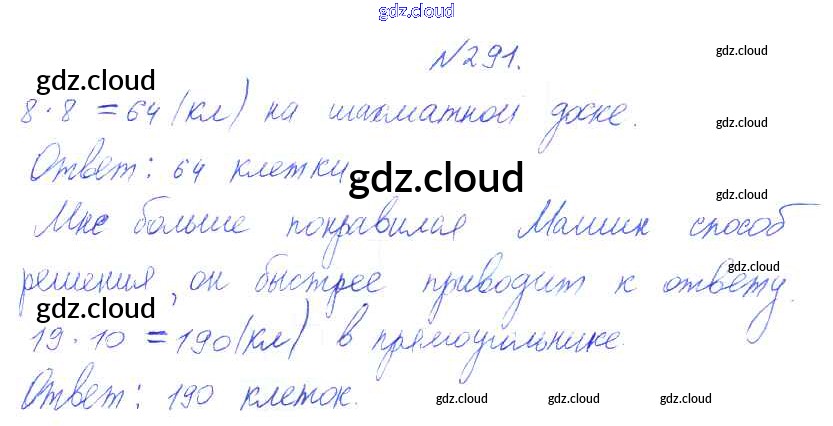 gdz.cloud
№291.
gdz.cloud
gdz.cloud
8·8=64(кл) на шахматной доске.
gdz.cloud
Ответ: 64 клетки
gdz.cloud
gdz.cloud
Мне больше понравился Машин способ
решения, он быстрее приводит к ответу.
gdz.cloud
gdz.cloud
19·10=190(кл) в прямоугольнике.
Ответ: 190 клеток.
gdz.cloud gdz.cloud gdz.cloud